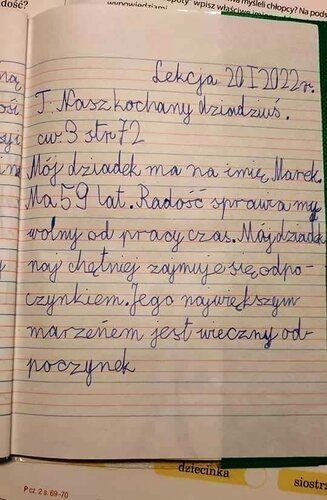 dość?
myśleli chłopcy? Na pod
wpowiedziami
wpisz właściwe
Lekcja 20 I 2022r.
T: Nasz kochany dziadziuś.
ćw. 3 str 72
Mój dziadek ma na imię Marek.
Ma 59 lat. Radość sprawa my
wolny od pracy czas. Mój dziadek
naj chętniej zajmuje się odpo-
czynkiem. Jego największym
marzeńem jest wieczny od-
poczynek
P cz. 2 s. 69-70
dziecinka
siostrz